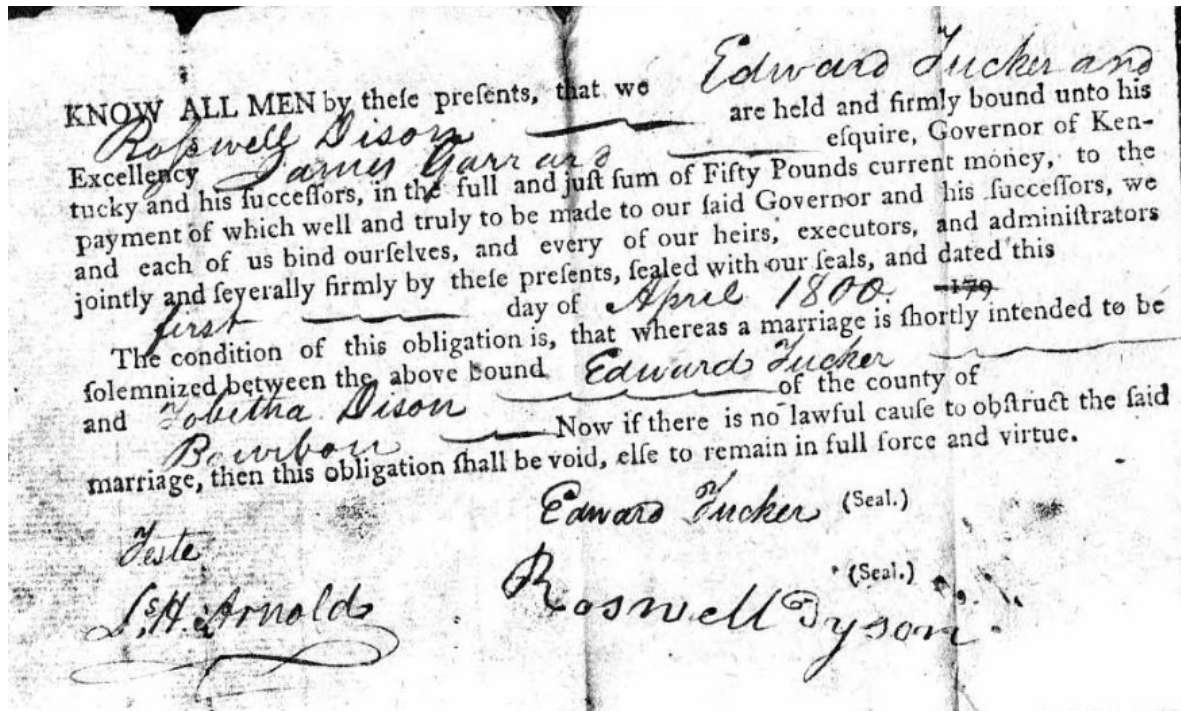 KNOW ALL MEN by theſe preſents, that we Edward Tucker and
Roſswell Dison are held and firmly bound unto his
Excellency James Garrard eſquire, Governor of Ken-
tucky and his ſucceſſors, in the full and juſt ſum of Fifty Pounds current money, to the
payment of which well and truly to be made to our ſaid Governor and his ſucceſſors, we
and each of us bind ourſelves, and every of our heirs, executors, and adminiſtrators
jointly and ſeverally firmly by theſe preſents, ſealed with our ſeals, and dated this
first day of April 1800. 179
The condition of this obligation is, that whereas a marriage is ſhortly intended to be
ſolemnized between the above bound Edward Tucker
and Tobitha Dison of the county of
Bourbon Now if there is no lawful cauſe to obſtruct the ſaid
marriage, then this obligation ſhall be void, elſe to remain in full force and virtue.
Edward Tucker (Seal.)
Teste
(Seal.)
Roswell Tyson.
H. Arnold